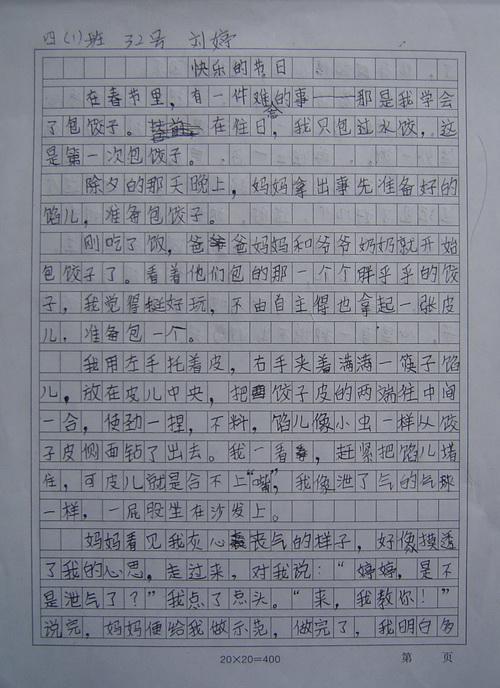 四(1)班 32号 刘婷
快乐的节日
在春节里,有一件难忘的事——那是我学会
了包饺子。在往日,我只包过水饺,这
是第一次包饺子。
除夕的那天晚上,妈妈拿出事先准备好的
馅儿,准备包饺子。
刚吃了饭,爸爸妈妈和爷爷奶奶就开始
包饺子了。看着他们包的那一个个胖乎乎的饺
子,我觉得挺好玩,不由自主得也拿起一张皮
儿,准备包一个。
我用左手托着皮,右手夹着满满一筷子馅
儿,放在皮儿中央,把饺子皮的两端往中间
一合,使劲一捏,不料,馅儿像小虫一样从饺
子皮侧面钻了出去。我一看,赶紧把馅儿堵
住,可皮儿就是合不上“嘴”,我像泄了气的气球
一样,一屁股坐在沙发上。
妈妈看见我灰心丧气的样子,好像摸透
了我的心思,走过来,对我说:“婷婷,是不
是泄气了?”我点了点头。“来,我教你!”
说完,妈妈便给我做示范,做完了,我明白多
20×20=400
第 页